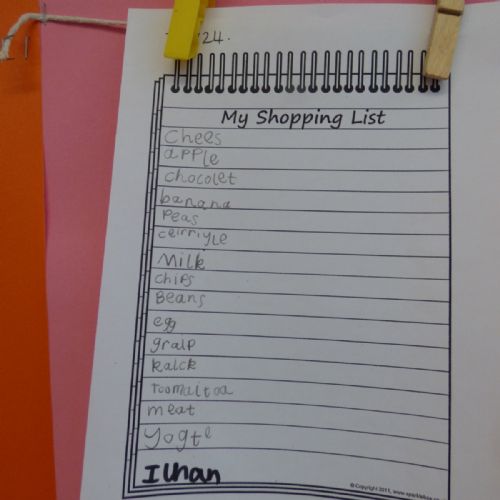 24.
My Shopping List
Chees
apple
chocolet
banana
Peas
Milk
chips
Beans
egg
gralp
kalck
toomaltoa
meat
yogte
Ilhan
© Copyright 2011, www.sparklebox.co